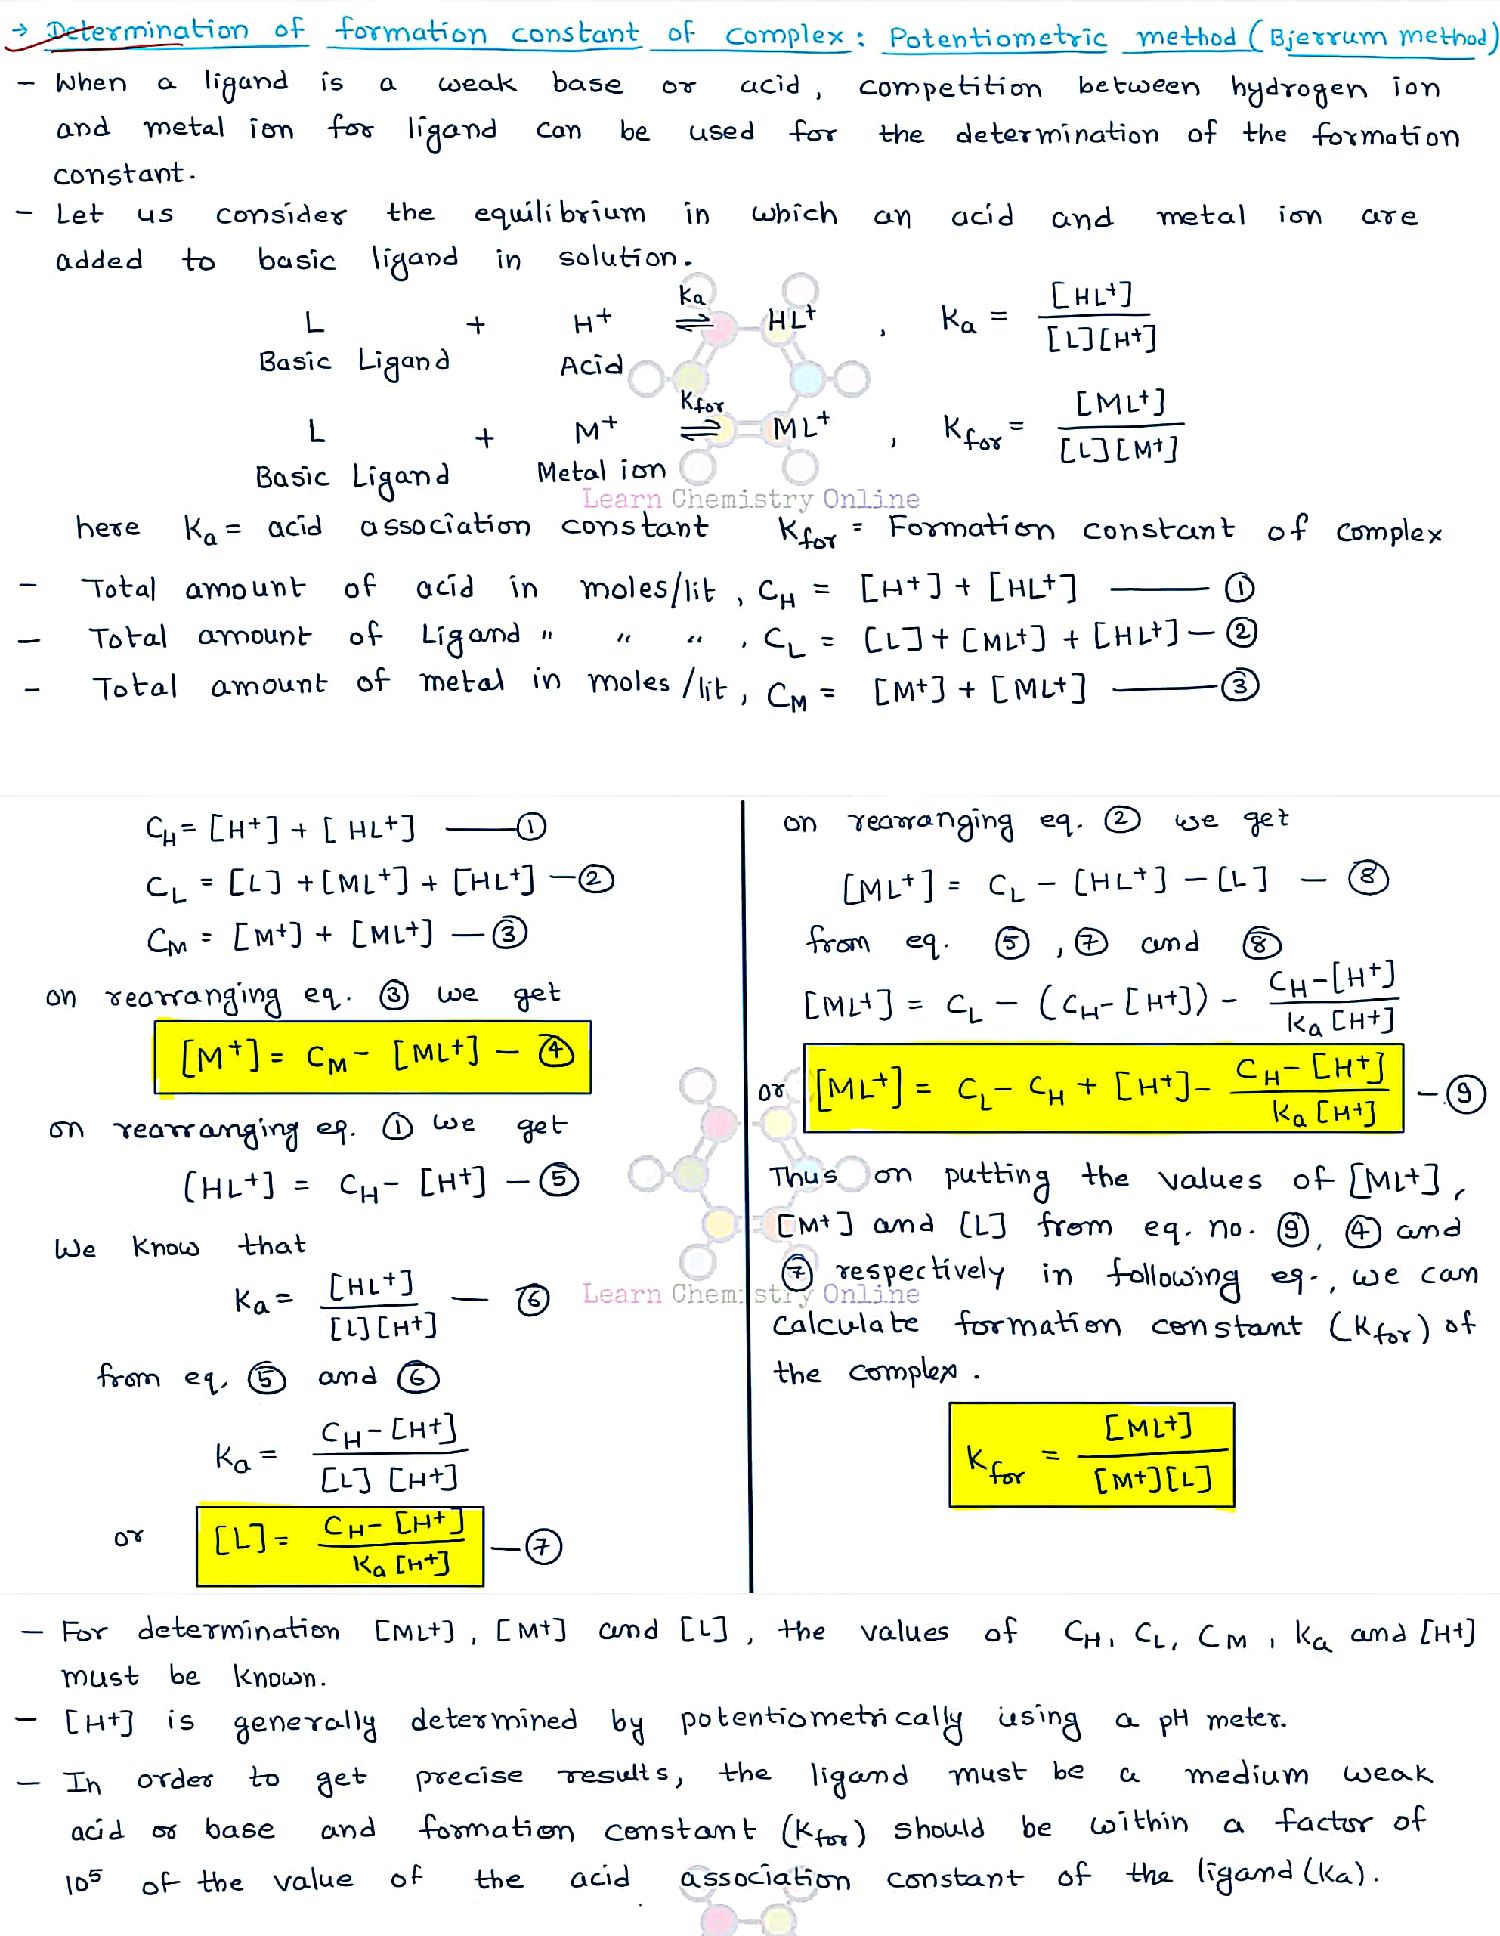 → Determination of formation constant of complex: Potentiometric method (Bjerrum method)
- When a ligand is a weak base or acid, competition between hydrogen ion
and metal ion for ligand can be used for the determination of the formation
constant.
- Let us consider the equilibrium in which an acid and metal ion are
added to basic ligand in solution.
L + H+ ⇌ (Ka) HL+ , Ka = [HL+] / [L][H+]
Basic Ligand Acid
L + M+ ⇌ (Kfor) ML+ , Kfor = [ML+] / [L][M+]
Basic Ligand Metal ion
Learn Chemistry Online
here Ka = acid association constant Kfor = Formation constant of complex
- Total amount of acid in moles/lit, CH = [H+] + [HL+] —— ①
- Total amount of Ligand " " " , CL = [L] + [ML+] + [HL+] — ②
- Total amount of metal in moles/lit, CM = [M+] + [ML+] —— ③
CH = [H+] + [HL+] —— ①
CL = [L] + [ML+] + [HL+] — ②
CM = [M+] + [ML+] — ③
on rearranging eq. ③ we get
[M+] = CM - [ML+] — ④
on rearranging eq. ① we get
[HL+] = CH - [H+] — ⑤
We know that
Ka = [HL+] / [L][H+] — ⑥
from eq. ⑤ and ⑥
Ka = CH - [H+] / [L] [H+]
or [L] = CH - [H+] / Ka [H+] — ⑦
on rearranging eq. ② we get
[ML+] = CL - [HL+] - [L] — ⑧
from eq. ⑤, ⑦ and ⑧
[ML+] = CL - (CH - [H+]) - CH - [H+] / Ka [H+]
or [ML+] = CL - CH + [H+] - CH - [H+] / Ka [H+] — ⑨
Thus on putting the values of [ML+],
[M+] and [L] from eq. no. ⑨, ④ and
⑦ respectively in following eq., we can
Learn Chemistry Online
calculate formation constant (Kfor) of
the complex.
Kfor = [ML+] / [M+][L]
- For determination [ML+], [M+] and [L], the values of CH, CL, CM, Ka and [H+]
must be known.
- [H+] is generally determined by potentiometrically using a pH meter.
- In order to get precise results, the ligand must be a medium weak
acid or base and formation constant (Kfor) should be within a factor of
10⁵ of the value of the acid association constant of the ligand (Ka).